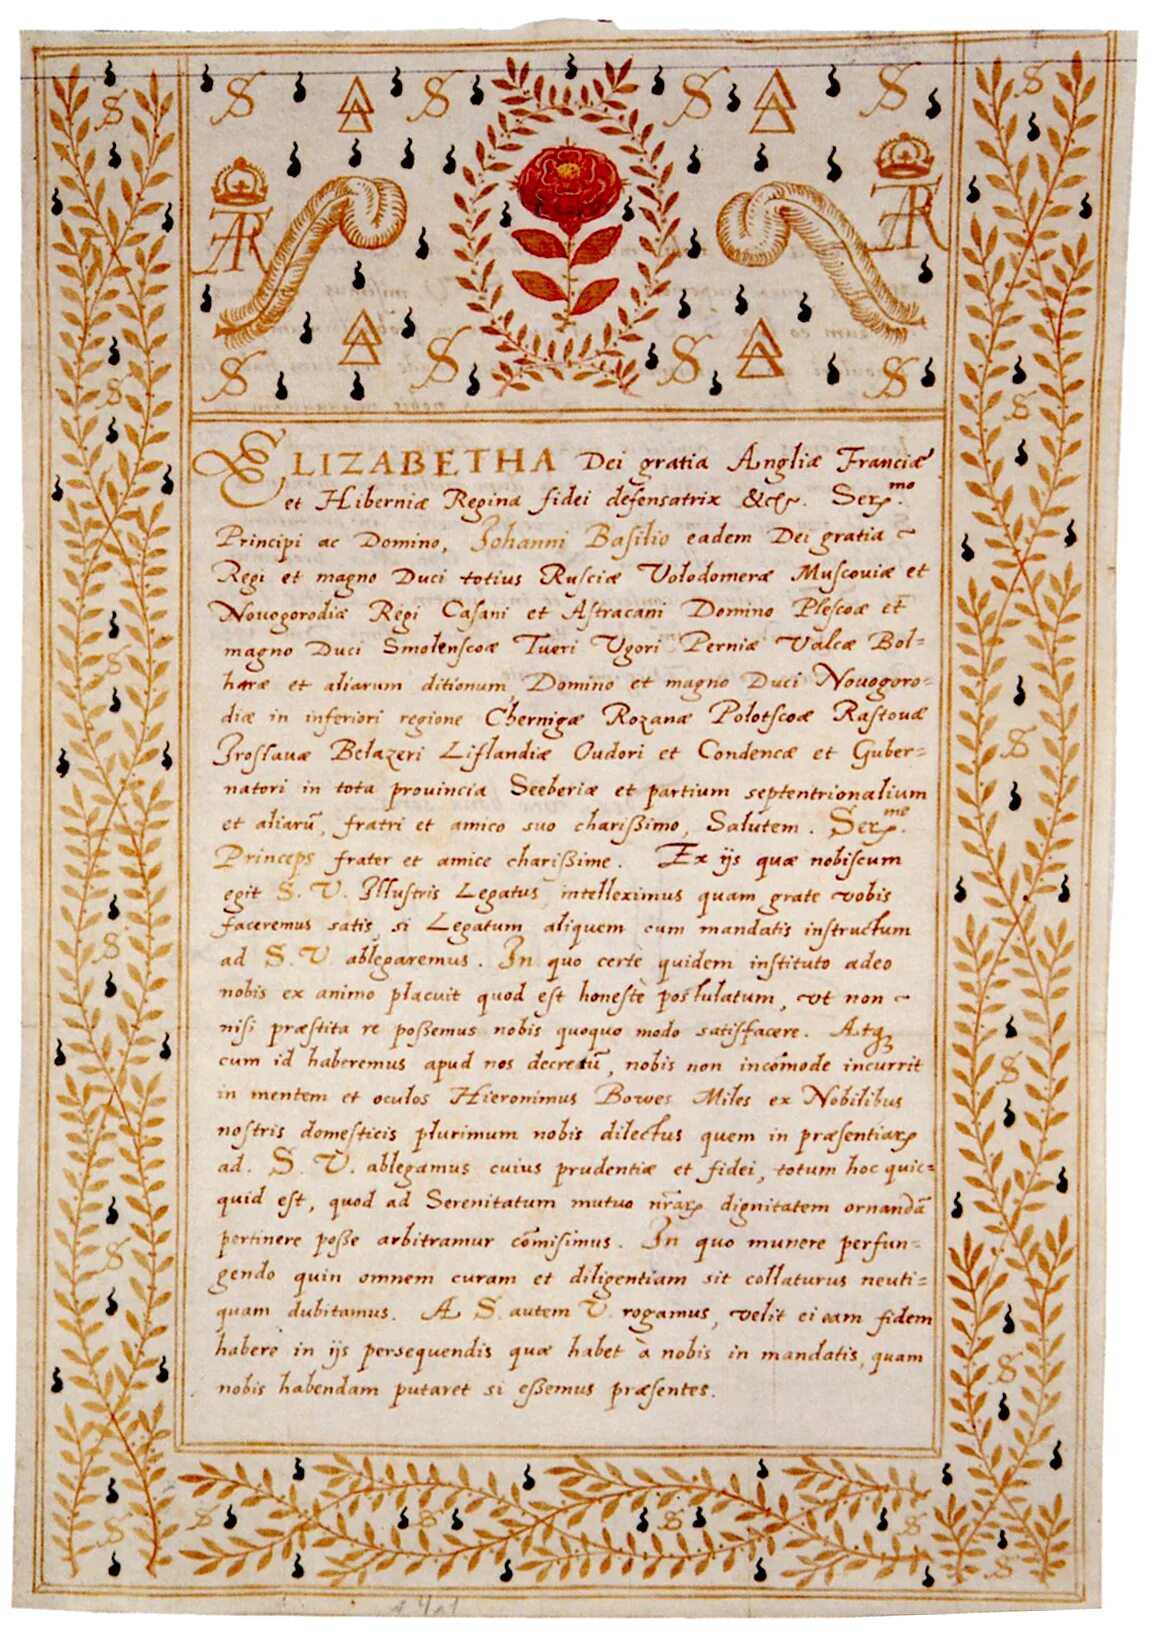 ELIZABETHA Dei gratia Angliæ Franciæ
et Hiberniæ Regina fidei defensatrix &c. Ser.mo
Principi ac Domino, Johanni Basilio eadem Dei gratia ~
Regi et magno Duci totius Rusciæ Volodomeræ Muscouiæ et
Nouogorodiæ Regi Casani et Astracani Domino Plescoæ et
magno Duci Smolenscoæ Tueri Vgori Perniæ Valcæ Bol=
haræ et aliarum ditionum Domino et magno Duci Nouogoro=
diæ in inferiori regione Chernigæ Rozanæ Polotscoæ Rastouæ
Jroslauæ Belazeri Liflandiæ Oudori et Condencæ et Guber=
natori in tota prouincia Seeberiæ et partium septentrionalium
et aliarū, fratri et amico suo charißimo, Salutem. Ser.me
Princeps frater et amice charißime. Ex ijs quæ nobiscum
egit S. V. Jllustris Legatus intelleximus quam grate vobis
faceremus satis, si Legatum aliquem cum mandatis instructum
ad S. V. ablegaremus. In quo certè quidem instituto adeo
nobis ex animo placuit quod est honestè postulatum, vt non ~
nisi præstita re poßemus nobis quoquo modo satisfacere. Atq
cum id haberemus apud nos decretū, nobis non incōmode incurrit
in mentem et oculos Hieronimus Bowes Miles ex Nobilibus
nostris domesticis plurimum nobis dilectus quem in præsentiaꝝ
ad. S. V. ablegamus cuius prudentiæ et fidei, totum hoc quic=
quid est, quod ad Serenitatum mutuo nr̄aꝝ dignitatem ornandā
pertinere poße arbitramur cōmisimus. In quo munere perfun=
gendo quin omnem curam et diligentiam sit collaturus neuti=
quam dubitamus. A S. autem V. rogamus, velit ei eam fidem
habere in ijs persequendis quæ habet à nobis in mandatis, quam
nobis habendam putaret si eßemus præsentes.